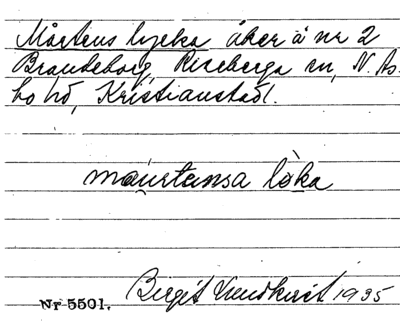 Mårtens lycka åker å nr 2
Brandeborg, Riseberga sn, N. Ås-
bo hd, Kristianstad l.
mau̯rtansa lò̱ka
Birgit Lundkvist 1935
Nr 5501.